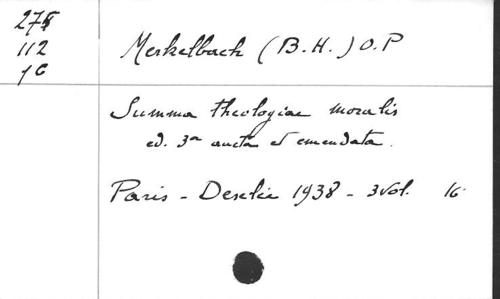 112
1C
Merkelbach (B.H.) O.P
Summa theologiae moralis
ed. 3a aucta et emendata.
Paris - Desclée 1938 - 3 vol. 16